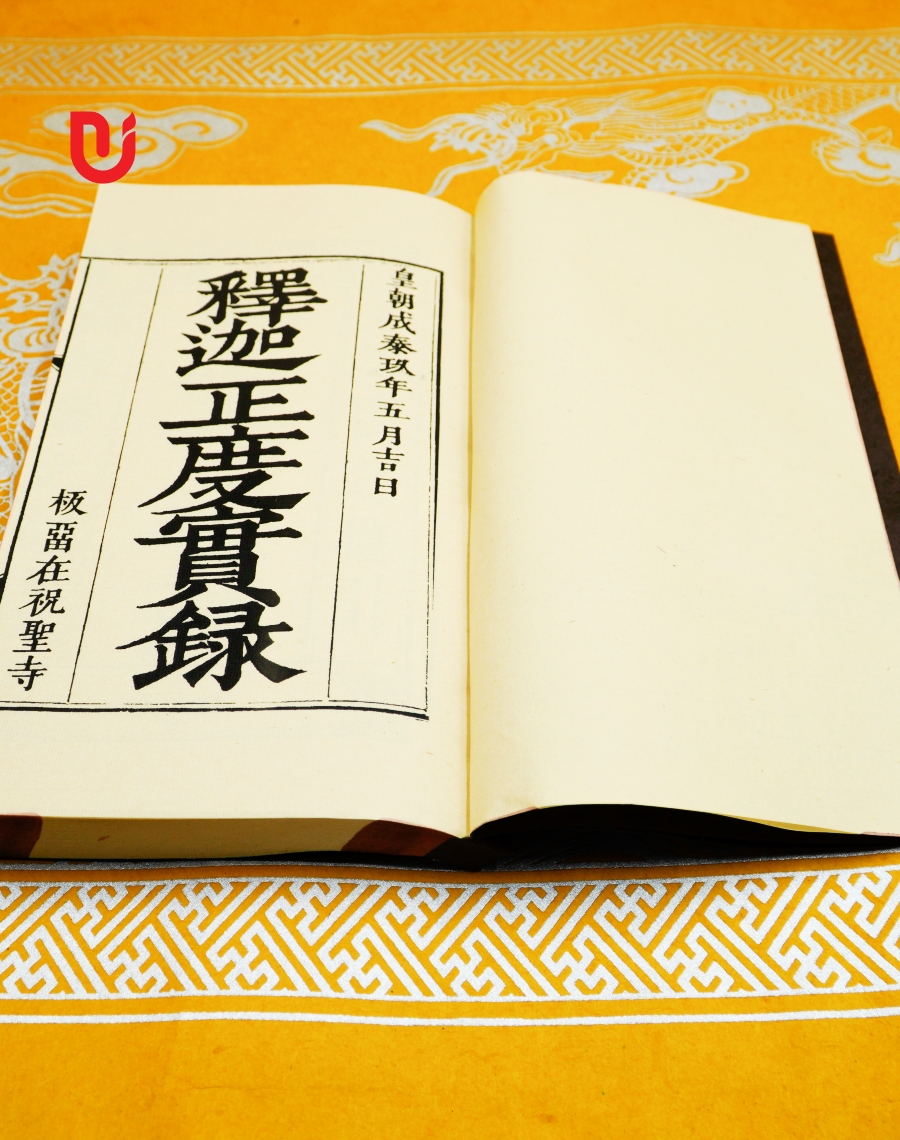 皇朝成泰玖年五月吉日
釋迦正度實録
板畱在祝聖寺